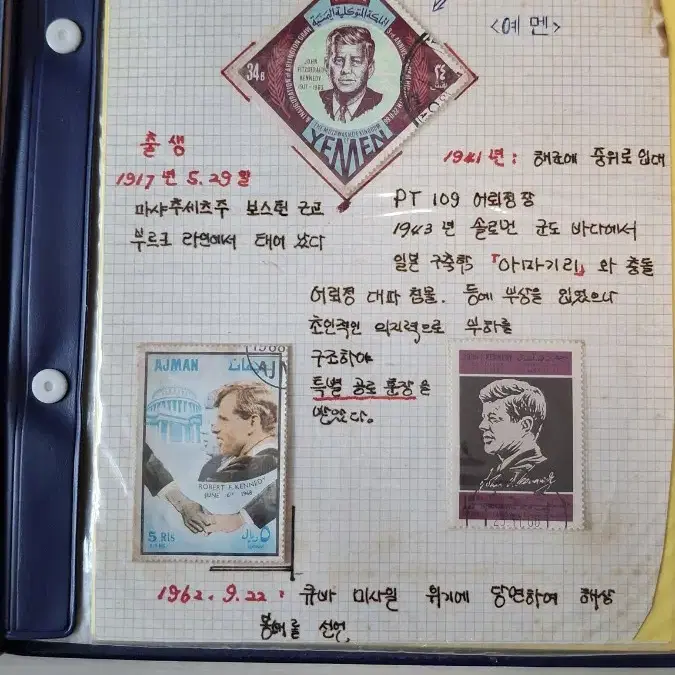 <예멘>
المملكة المتوكلية اليمنية
34B
JOHN
FITZGERALD
KENNEDY
1917 - 1963
٢٤
THE MUTAWAKELITE KINGDOM
YEMEN
출생
1917년 5.29일
마사추세츠주 보스턴 근교
부르크 라인에서 태어났다
1941년: 해군에 중위로 입대
PT 109 어뢰정장
1943년 솔로먼 군도 바다에서
일본 구축함 「아마기리」와 충돌
어뢰정 대파 침몰. 등에 부상을 입었으나
초인적인 의지력으로 부하를
구조하여
특별 공로 훈장을
받았다.
AJMAN عجمان
1968
AJM
ROBERT F. KENNEDY
JUNE 6TH 1968
5 Rls
٥ ريال
John F. Kennedy
1962. 9.22: 큐바 미사일 위기에 당연하여 해상
봉쇄를 선언